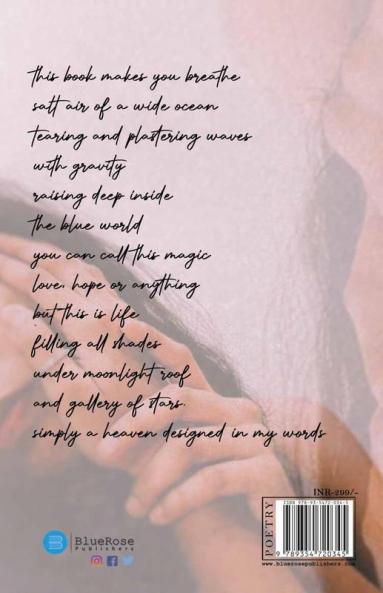 this book makes you breathe
salt air of a wide ocean
tearing and plastering waves
with gravity
raising deep inside
the blue world
you can call this magic
love, hope or anything
but this is life
filling all shades
under moonlight roof
and gallery of stars.
simply a heaven designed in my words
INR-299/-
POETRY
ISBN 978-93-5472-034-5
9 789354 720345
www.bluerosepublishers.com
BlueRose
Publishers